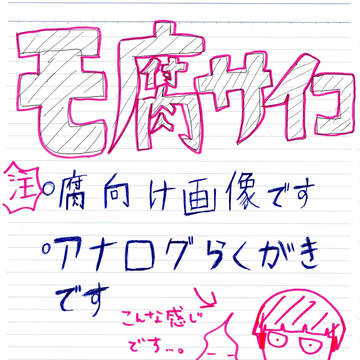 モ腐サイコ
注
○腐向け画像です
○アナログらくがき
です
こんな感じ
です…。